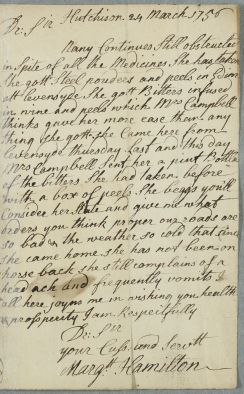 Dr: Sir Hutchison 24 March 1756
Nany Continues Still obstructed
in Spite of all the Medicines She has taken
She gott Steel pouders and peels in Edinr
att Levensyde She gott Bitters infused
in wine and peels which Mrs Campbell
thinks gave her more ease than any
thing She gott, She Came here from
Levensyde thursday Last and this day
Mrs Campbell Sent her a pint Bottle
of the bitters She had taken before
with a box of peels She begs you'll
Consider her State and give me what
orders you think proper our roads are
so bad & the weather so cold that since
She came home she has not been on
horse back she still complains of a
head ach and frequently vomits
all here joyns me in wishing you health
& prosperity I am Respectfully
Dr: Sir
your Cusn: and Servtt
Margt. Hamilton